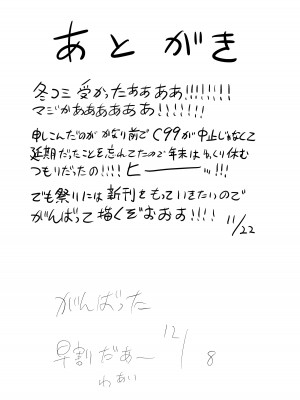 あとがき
冬コミ受かったぁぁぁぁ!!!!!!!
マジかぁぁぁぁぁぁ!!!!!!!
申しこんだのが かなり前で C99が中止じゃなくて
延期だったことを忘れてたので年末はゆっくり休む
つもりだったの!!!! ヒーーーッ!!!
でも祭りには新刊をもっていきたいので
がんばって描くぞおおお!!!! 11/22
がんばった
早割だぁ〜 12/8
わぁい